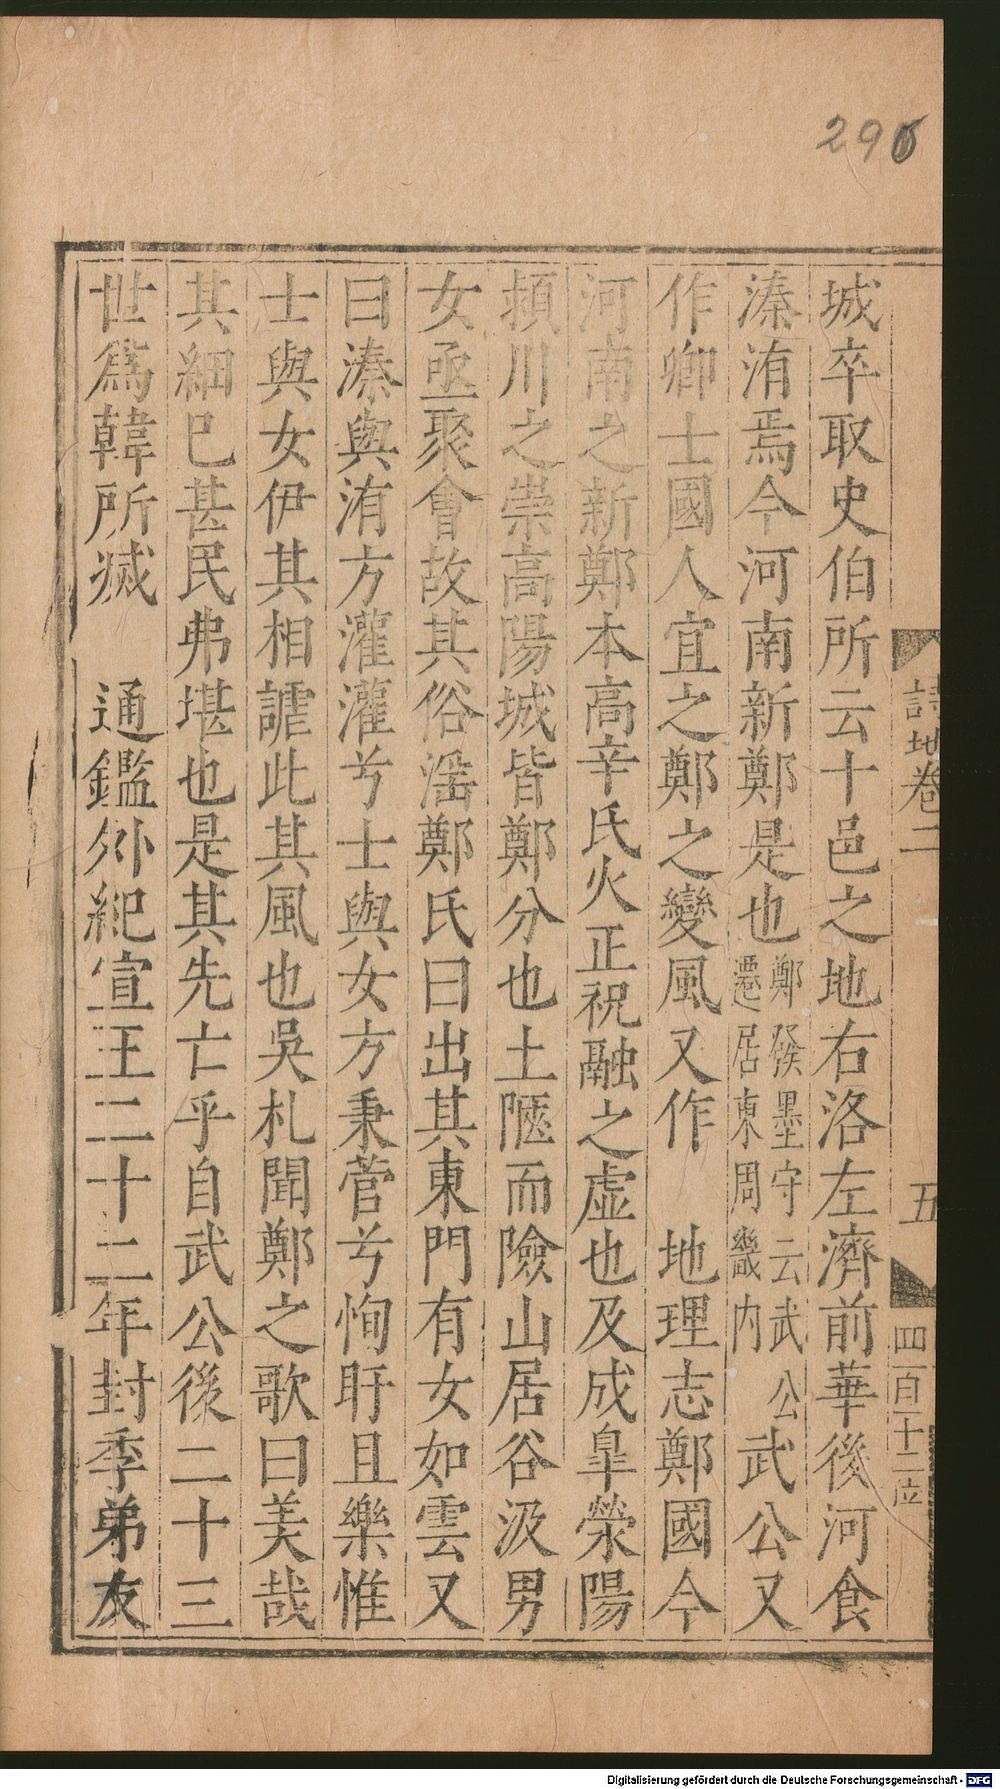 290
詩地卷二
五
四百十二位
城卒取史伯所云十邑之地右洛左濟前華後河食
溱洧焉今河南新鄭是也鄭發墨守云武公遷居東周畿内武公又
作卿士國人宜之鄭之變風又作　地理志鄭國今
河南之新鄭本高辛氏火正祝融之虚也及成皐滎陽
潁川之崇高陽城皆鄭分也土陿而險山居谷汲男
女亟聚會故其俗滛鄭氏曰出其東門有女如雲又
曰溱與洧方灌灌兮士與女方秉菅兮恂盱且樂惟
士與女伊其相謔此其風也吳札聞鄭之歌曰美哉
其細已甚民弗堪也是其先亡乎自武公後二十三
世爲韓所滅　通鑑外紀宣王二十二年封季弟友
Digitalisierung gefördert durch die Deutsche Forschungsgemeinschaft - DFG